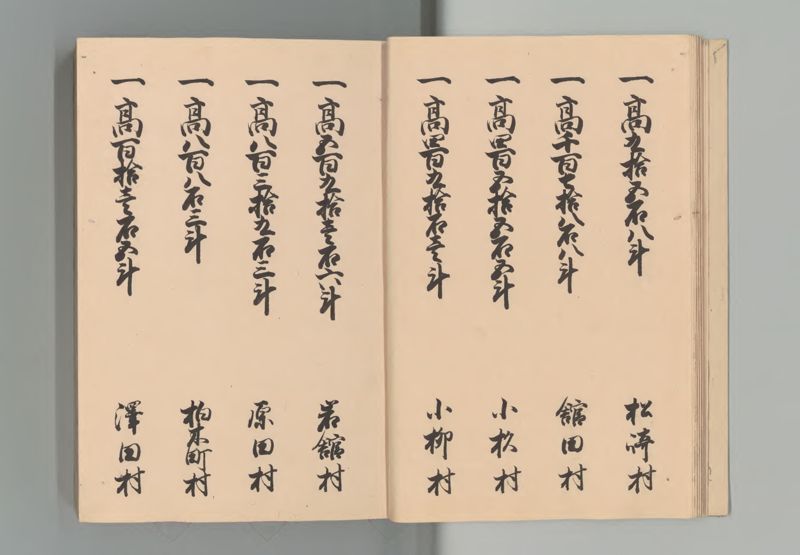 一高九拾五石八斗 松崎村
一高千百七拾八石八斗 舘田村
一高四百五拾五石五斗 小杦村
一高四百九拾石壱斗 小柳村
一高五百九拾壱石六斗 岩舘村
一高八百三拾九石三斗 原田村
一高八百八石三斗 柏木町村
一高百拾壱石五斗 澤田村